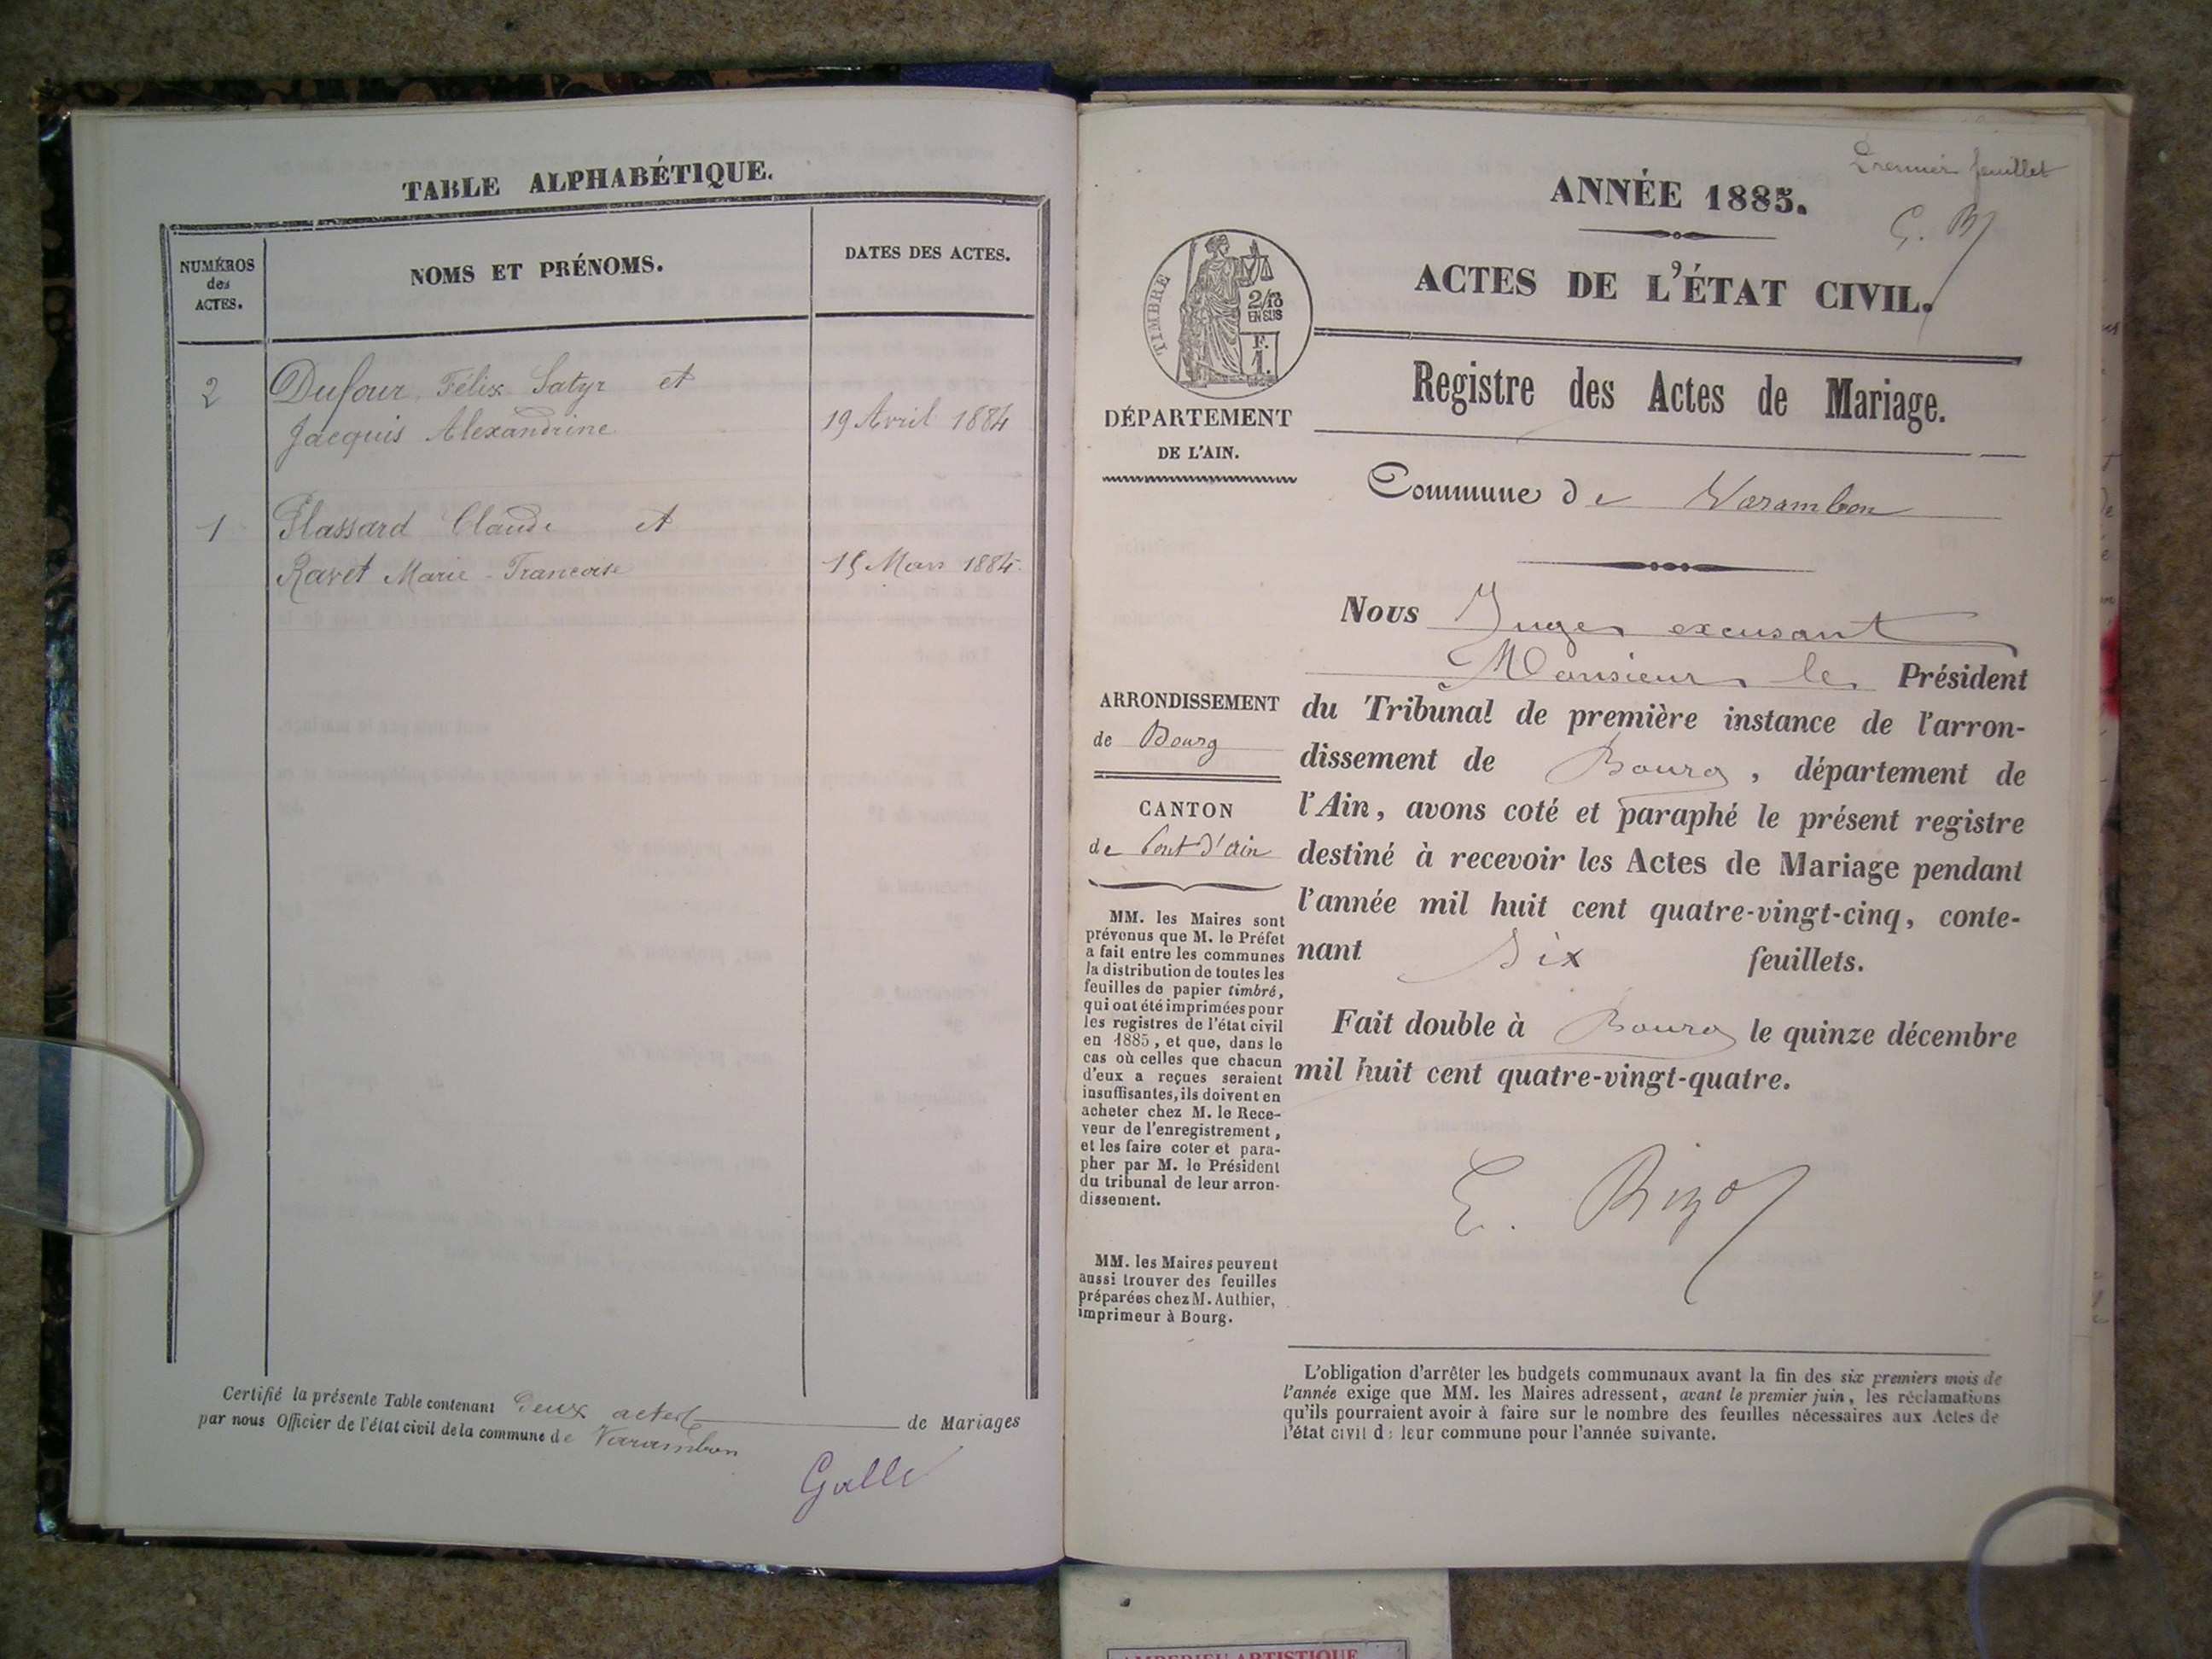 TABLE ALPHABÉTIQUE.
NUMÉROS
des
ACTES.
NOMS ET PRÉNOMS.
DATES DES ACTES.
2 Dufour Félix Satyr et
Jacquis Alexandrine 19 Avril 1884
1 Plassard Claude et
Ravet Marie-Francoise 15 Mars 1884
Certifié la présente Table contenant deux actes de Mariages
par nous Officier de l'état civil de la commune de Varambon
Galle
Premier feuillet
ANNÉE 1885.
ACTES DE L'ÉTAT CIVIL.
TIMBRE
2/10
EN SUS
F.
1.
DÉPARTEMENT
DE L'AIN.
Registre des Actes de Mariage.
Commune de Varambon
Nous Juge excusant
Monsieur le Président
du Tribunal de première instance de l'arron-
dissement de Bourg, département de
l'Ain, avons coté et paraphé le présent registre
destiné à recevoir les Actes de Mariage pendant
l'année mil huit cent quatre-vingt-cinq, conte-
nant Six feuillets.
Fait double à Bourg le quinze décembre
mil huit cent quatre-vingt-quatre.
ARRONDISSEMENT
de Bourg
CANTON
de Pont-d'Ain
MM. les Maires sont
prévenus que M. le Préfet
a fait entre les communes
la distribution de toutes les
feuilles de papier timbré,
qui ont été imprimées pour
les registres de l'état civil
en 1885, et que, dans le
cas où celles que chacun
d'eux a reçues seraient
insuffisantes, ils doivent en
acheter chez M. le Rece-
veur de l'enregistrement,
et les faire coter et para-
pher par M. le Président
du tribunal de leur arron-
dissement.
MM. les Maires peuvent
aussi trouver des feuilles
préparées chez M. Authier,
imprimeur à Bourg.
L'obligation d'arrêter les budgets communaux avant la fin des six premiers mois de
l'année exige que MM. les Maires adressent, avant le premier juin, les réclamations
qu'ils pourraient avoir à faire sur le nombre des feuilles nécessaires aux Actes de
l'état civil de leur commune pour l'année suivante.